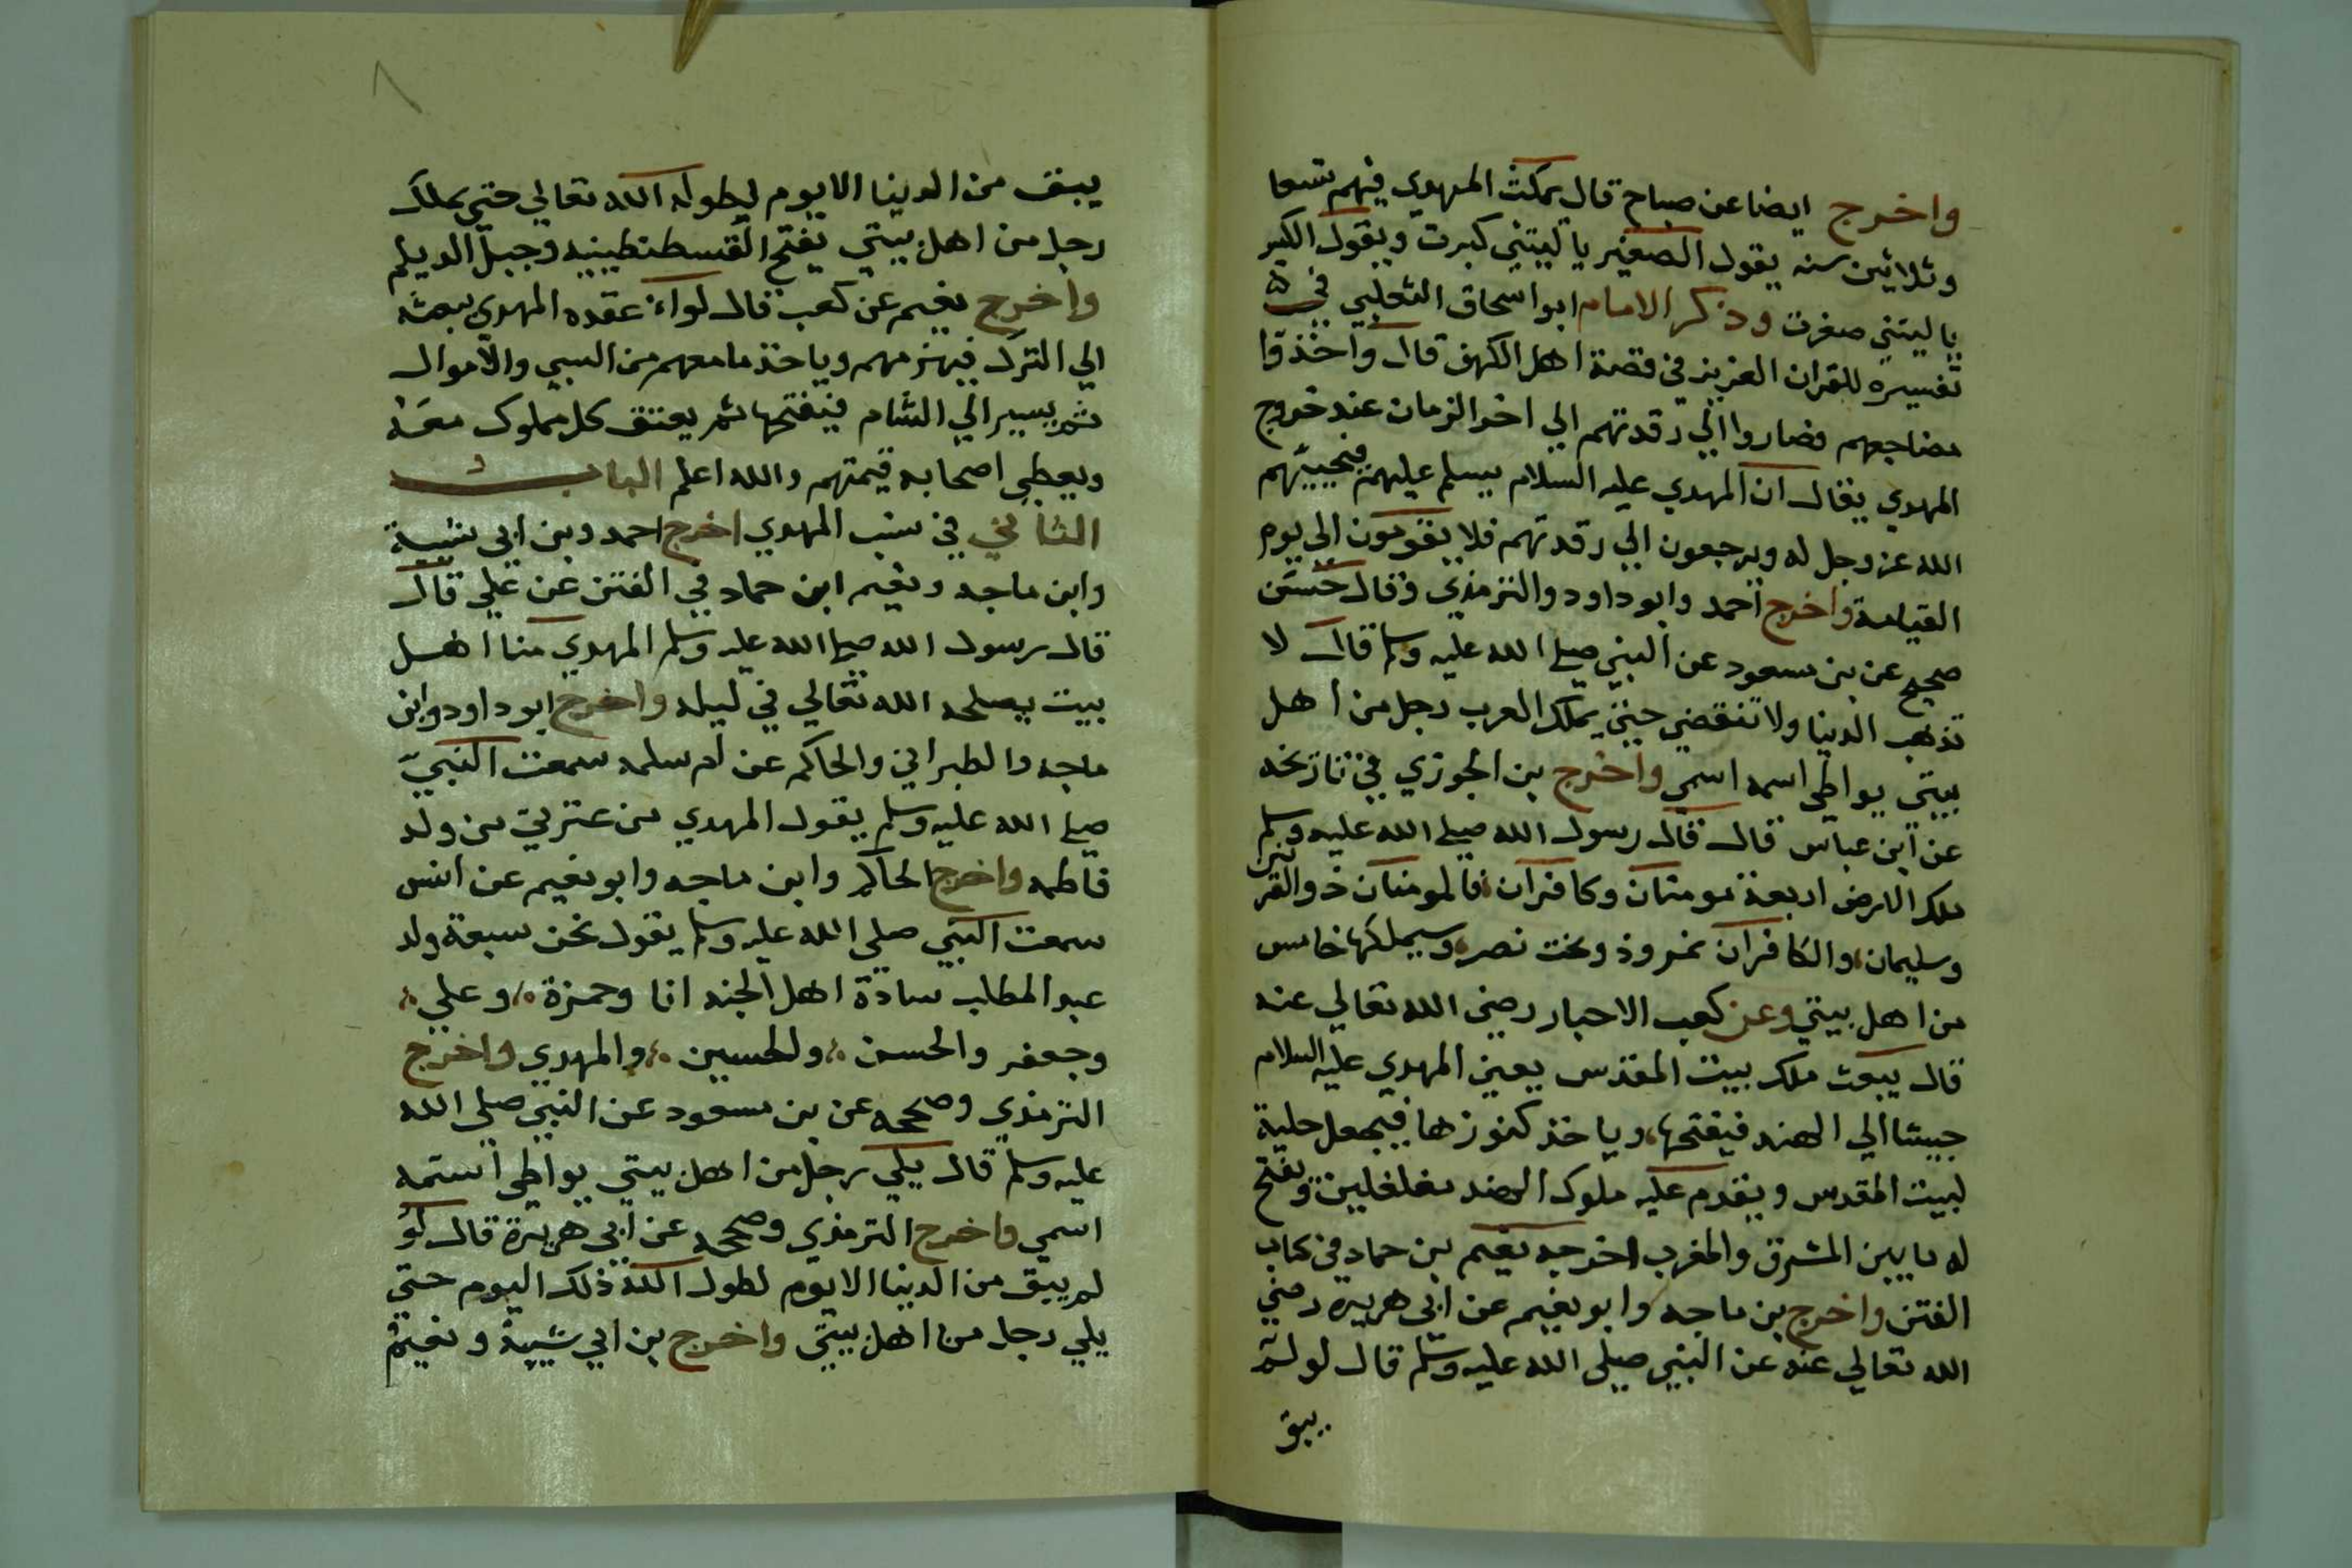 واخرج ايضا عن صباح قال يمكث المهدي فيهم تسعا
وثلاثين سنه يقول الصغير يا ليتني كبرت ويقول الكبير
يا ليتني صغرت وذكر الامام ابو اسحاق الثعلبي في
تفسيره للقران العزيز في قصة اهل الكهف قال واخذوا
مضاجعهم فصاروا الي رقدتهم الي اخر الزمان عند خروج
المهدي يقال ان المهدي عليه السلام يسلم عليهم فيحييهم
الله عز وجل له ويرجعون الي رقدتهم فلا يقومون الي يوم
القيامة واخرج احمد وابو داود والترمذي وقال حسن
صحيح عن بن مسعود عن النبي صلي الله عليه وسلم قال لا
تذهب الدنيا ولا تنقضي حتي يملك العرب رجل من اهل
بيتي يواطي اسمه اسمي واخرج بن الجوزي في تاريخه
عن ابن عباس قال قال رسول الله صلي الله عليه وسلم
ملك الارض اربعة مومنان وكافران فالمومنان ذو القرنين
وسليمان والكافران نمروذ وبخت نصر وسيملكها خامس
من اهل بيتي وعن كعب الاحبار رضي الله تعالي عنه
قال يبعث ملك بيت المقدس يعني المهدي عليه السلام
جيشا الي الهند فيفتحها وياخذ كنوزها فيجعل حلية
لبيت المقدس ويقدم عليه ملوك الهند مغلغلين ويفتح
له ما بين المشرق والمغرب اخرجه نعيم بن حماد في كتاب
الفتن واخرج بن ماجه وابو نعيم عن ابي هريرة رضي
الله تعالي عنه عن النبي صلي الله عليه وسلم قال لو لم
يبق
٨
يبق من الدينا الا يوم ليطوله الله تعالي حتي يملك
رجل من اهل بيتي يفتح القسطنطينيه وجبل الديلم
واخرج نعيم عن كعب قال لواء عقده المهدي يبعثه
الي الترك فيهزمهم وياخذ ما معهم من السبي والاموال
ثم يسير الي الشام فيفتحها ثم يعتق كل مملوك معه
ويعطي اصحابه قيمتهم والله اعلم الباب
الثاني في نسب المهدي اخرج احمد وبن ابي شيبة
وابن ماجه ونعيم ابن حماد في الفتن عن علي قال
قال رسول الله صلي الله عليه وسلم المهدي منا اهل
بيت يصلحه الله تعالي في ليله واخرج ابو داود وابن
ماجه والطبراني والحاكم عن ام سلمه سمعت النبي
صلي الله عليه وسلم يقول المهدي من عترتي من ولد
فاطمه واخرج الحاكم وابن ماجه وابو نعيم عن انس
سمعت النبي صلي الله عليه وسلم يقول نحن سبعة ولد
عبد المطلب سادة اهل الجنه انا وحمزة وعلي
وجعفر والحسن ولحسين والمهدي واخرج
الترمذي وصححه عن بن مسعود عن النبي صلي الله
عليه وسلم قال يلي رجل من اهل بيتي يواطي اسمه
اسمي واخرج الترمذي وصححه عن ابي هريرة قال لو
لم يبق من الدينا الا يوم لطول الله ذلك اليوم حتي
يلي رجل من اهل بيتي واخرج بن ابي شيبة ونعيم